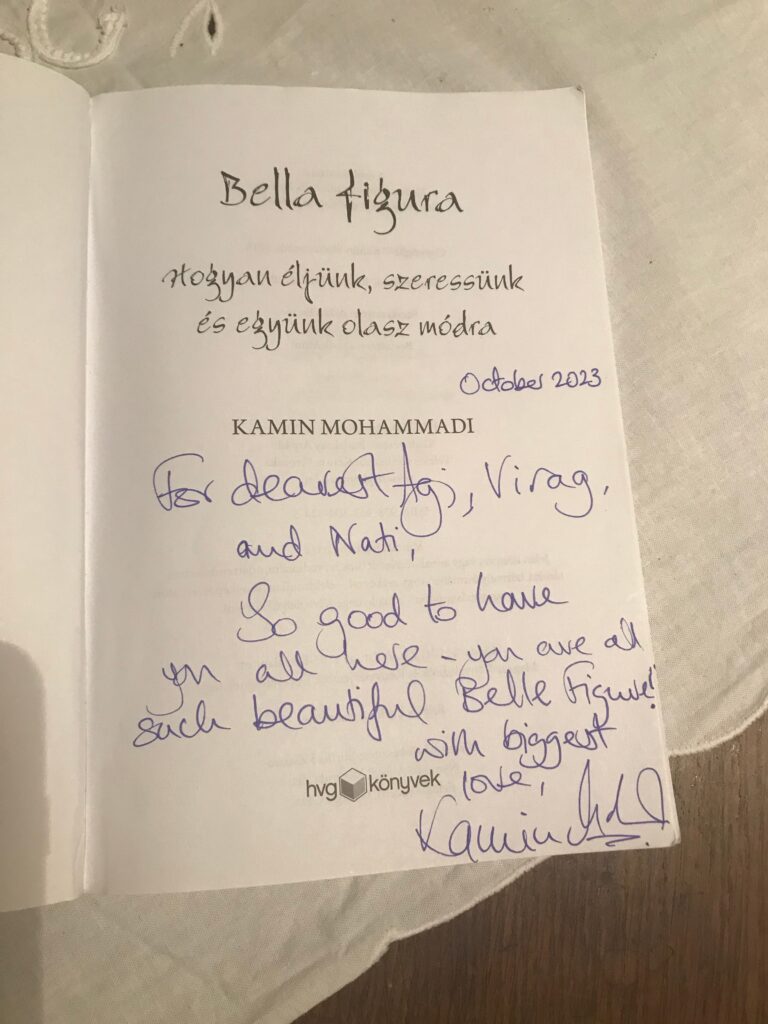 Bella figura
Hogyan éljünk, szeressünk
és együnk olasz módra
October 2023
KAMIN MOHAMMADI
For dearest Agi, Virag,
and Nati,
So good to have
you all here - you are all
such beautiful Belle Figure!
with biggest
hvg könyvek
love,
Kamin